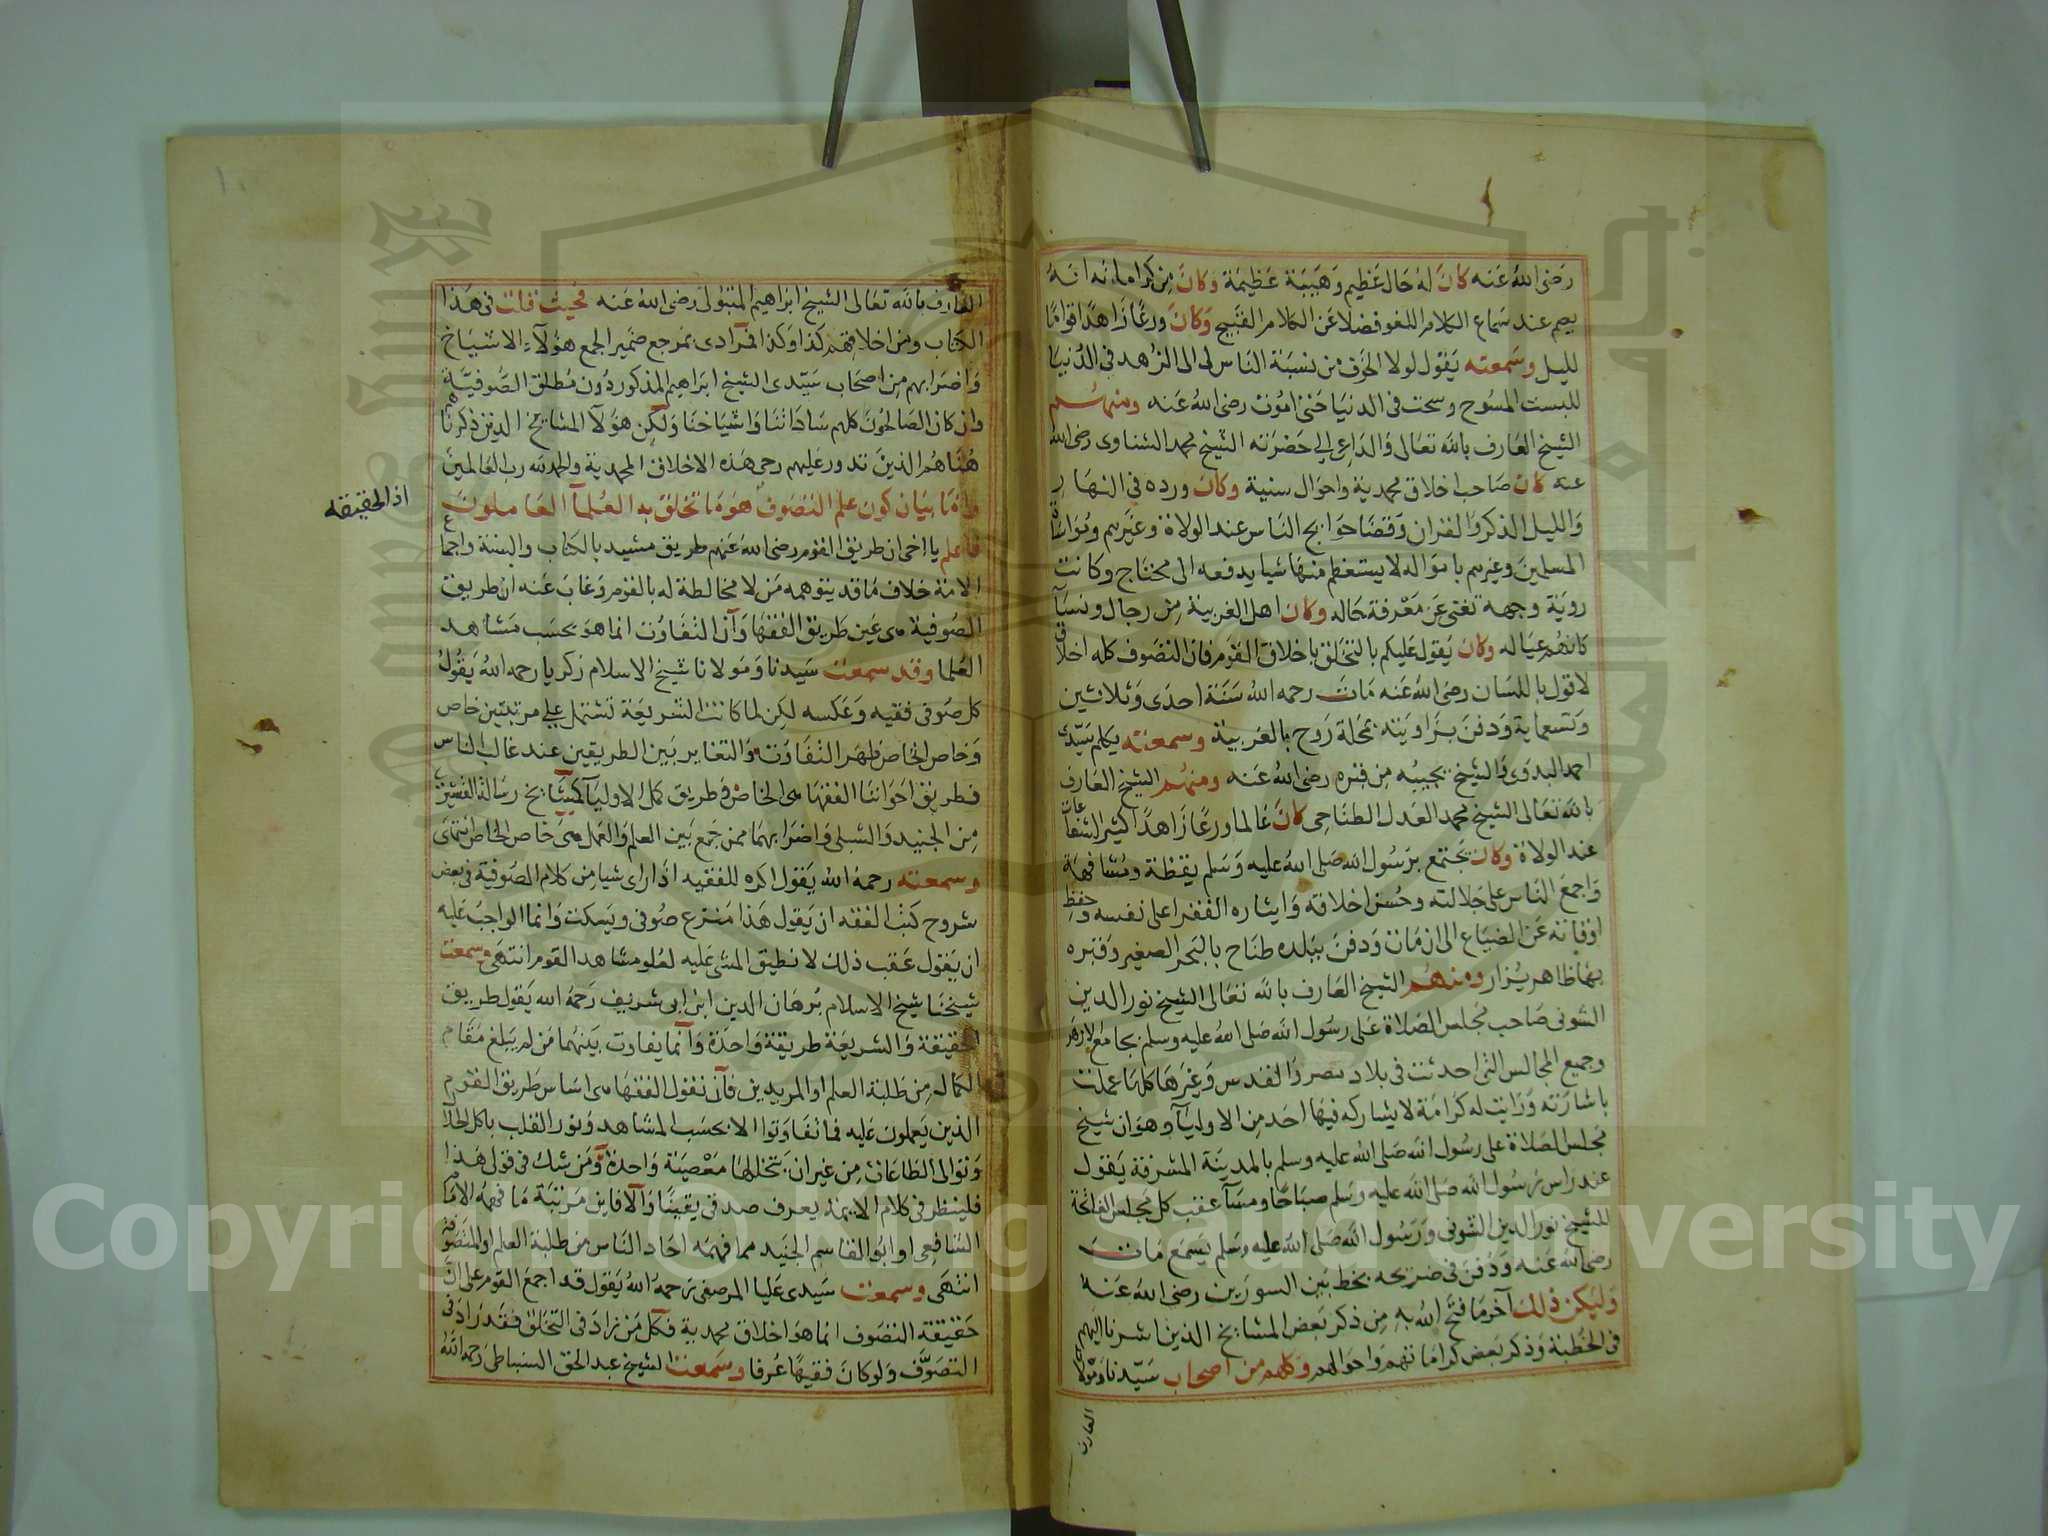 رضى الله عنه كان له حال عظيم وهيبة عظيمة وكان من كراماته انه
يصم عند سماع الكلام اللغو فضلا عن الكلام القبيح وكان ورعًا زاهدًا قوامًا
لليل وسمعته يقول لولا الخوف من نسبة الناس لى الى الزهد في الدنيا
للبست المسوح وسحت في الدنيا حتى اموت رضى الله عنه ومنهم
الشيخ العارف بالله تعالى والداعى الى حضرته الشيخ محمد الشناوى رضى الله
عنه كان صاحب اخلاق محمدية واحوال سنية وكان ورده في النهار
والليل الذكر والقران وقضا حوايج الناس عند الولاة وغيرهم ومواساة
المسلمين وغيرهم بامواله لا يستعظم منها شيا يدفعه الى محتاج وكانت
روية وجهه تغنى عن معرفة حاله وكان اهل الغربية من رجال ونسآ
كانهم عياله وكان يقول عليكم بالتخلق باخلاق القوم فان التصوف كله اخلاق
لا قول باللسان رضى الله عنه مات رحمه الله سنة احدى وثلاثين
وتسعماية ودفن بزاويته بمحلة روح بالغربية وسمعته يكلم سيدى
احمد البدوى والشيخ يجيبه من قبره رضى الله عنه ومنهم الشيخ العارف
بالله تعالى الشيخ محمد العدل الطناحى كان عالما ورعًا زاهدًا كثير الشفاعات
عند الولاة وكان يجتمع برسول الله صلى الله عليه وسلم يقظة ومشافهة
واجمع الناس على جلالته وحسن اخلاقه وايثاره الفقرا على نفسه وحفظ
اوقاته عن الضياع الى ان مات ودفن ببلده طناح بالبحر الصغير وقبره
بها ظاهر يزار ومنهم الشيخ العارف بالله تعالى الشيخ نور الدين
الشونى صاحب مجلس الصلاة على رسول الله صلى الله عليه وسلم بجامع الازهر
وجميع المجالس التى احدثت في بلاد مصر والقدس وغيرها كلها عملت
باشارته ورايت له كرامة لا يشاركه فيها احد من الاوليآ وهو ان شيخ
مجلس الصلاة على رسول الله صلى الله عليه وسلم بالمدينة المشرفة يقول
عند راس رسول الله صلى الله عليه وسلم صباحا ومسآ عقب كل مجلس الفاتحة
للشيخ نور الدين الشونى ورسول الله صلى الله عليه وسلم يسمع مات
رضى الله عنه ودفن في ضريحه بخط بين السورين رضى الله عنه
وليكن ذلك آخر ما فتح الله به من ذكر بعض المشايخ الذين اشرنا اليهم
في الخطبة وذكر بعض كراماتهم واحوالهم وكلهم من اصحاب سيدنا ومولانا
العارف
العارف بالله تعالى الشيخ ابراهيم المتبولى رضى الله عنه فحيث قلت في هذا
الكتاب ومن اخلاقهم كذا وكذا فمرادى بمرجع ضمير الجمع هؤلآء الاشياخ
واضرابهم من اصحاب سيدى الشيخ ابراهيم المذكور دون مطلق الصوفية
وان كان الصالحون كلهم ساداتنا واشياخنا ولكن هؤلآ المشايخ الذين ذكرناهم
هنا هم الذين تدور عليهم رحى هذه الاخلاق المحمدية والحمد لله رب العالمين
واما بيان كون علم التصوف هو ما تخلق به العلمآ العاملون
فاعلم يا اخى ان طريق القوم رضى الله عنهم طريق مشيد بالكتاب والسنة واجماع
الامة خلاف ما قد يتوهمه من لا مخالطة له بالقوم وغاب عنه ان طريق
الصوفية هى عين طريق الفقها وآن التفاوت انما هو بحسب مشاهد
العلما وقد سمعت سيدنا ومولانا شيخ الاسلام زكريا رحمه الله يقول
كل صوفى فقيه وعكسه لكن لما كانت الشريعة تشتمل على مرتبتين خاص
وخاص الخاص ظهر التفاوت والتغاير بين الطريقين عند غالب الناس
فطريق اخواننا الفقها هى الخاص وطريق كمل الاوليآ كمشايخ رسالة القشيرى
من الجنيد والشبلى واضرابهما ممن جمع بين العلم والعمل هى خاص الخاص انتهى
وسمعته رحمه الله يقول اكره للفقيه اذا راى شيا من كلام الصوفية في بعض
شروح كتب الفقه ان يقول هذا منزع صوفى ويسكت وانما الواجب عليه
ان يقول عقب ذلك لا نطيق المشى عليه لعلو مشاهد القوم انتهى وسمعت
شيخنا شيخ الاسلام برهان الدين ابن ابى شريف رحمه الله يقول طريق
الحقيقة والشريعة طريقة واحدة وآنما يفاوت بينهما من لم يبلغ مقام
الكمال من طلبة العلم او المريدين فآن نقول الفقها هى اساس طريق القوم
الذين يعملون عليه فما تفاوتوا الا بحسب المشاهد ونور القلب باكل الحلال
وتوالى الطاعات من غير ان يتخللها معصية واحدة ومن شك في قولى هذا
فلينظر في كلام الايمة يعرف صدقى يقينًا وآلا فاين مرتبة ما فهمه الامام
الشافعى او ابو القاسم الجنيد مما فهمه احاد الناس من طلبة العلم او المتصوفة
انتهى وسمعت سيدى عليا المرصفى رحمه الله يقول قد اجمع القوم على ان
حقيقة التصوف انما هو اخلاق محمدية فكل من زاد في التخلق فقد زاد في
التصوف ولو كان فقيهًا عرفا وسمعت الشيخ عبد الحق السنباطى رحمه الله
اذ الحقيقه
Copyright © King Saud University